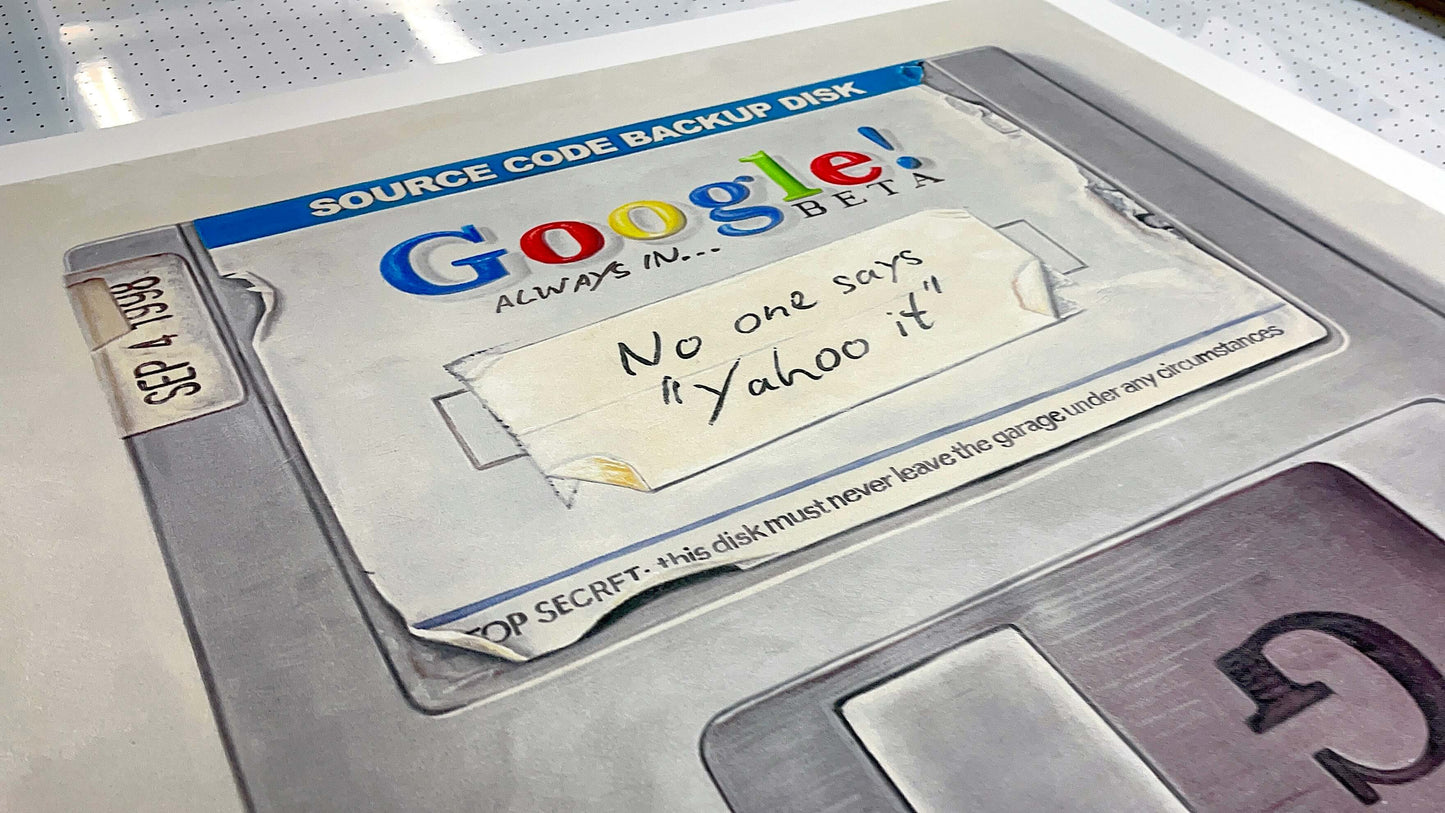 SOURCE CODE BACKUP DISK
Google!
BETA
ALWAYS IN...
No one says
"Yahoo it"
SEP 4 1998
TOP SECRET. this disk must never leave the garage under any circumstances
G